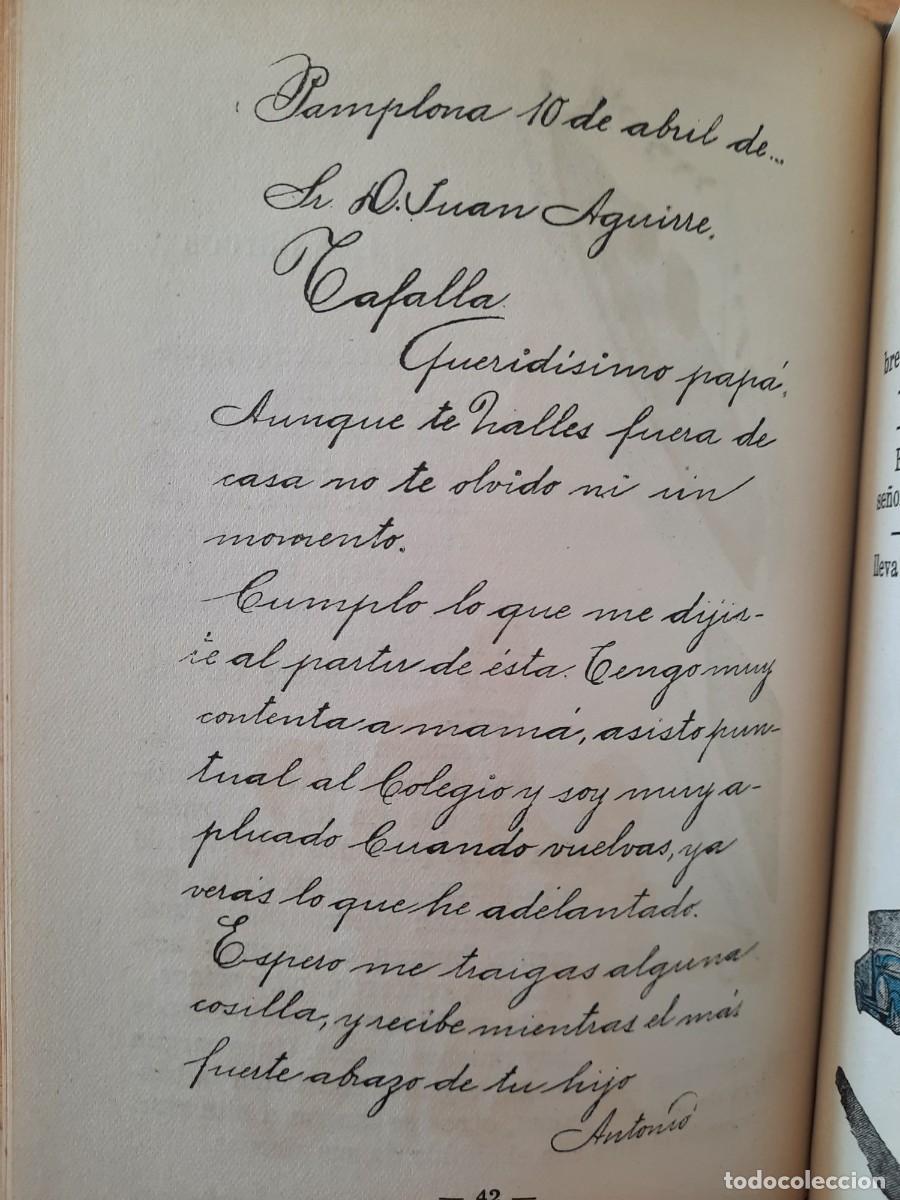 Pamplona 10 de abril de...
Sr. D. Juan Aguirre.
Tafalla.
Queridísimo papá.
Aunque te halles fuera de
casa no te olvido ni un
momento.
Cumplo lo que me dijis-
te al partir de ésta. Tengo muy
contenta a mamá, asisto pun-
tual al Colegio y soy muy a-
plicado Cuando vuelvas, ya
verás lo que he adelantado.
Espero me traigas alguna
cosilla, y recibe mientras el más
fuerte abrazo de tu hijo
Antonio
— 42 —
bre
seño
lleva
todocoleccion